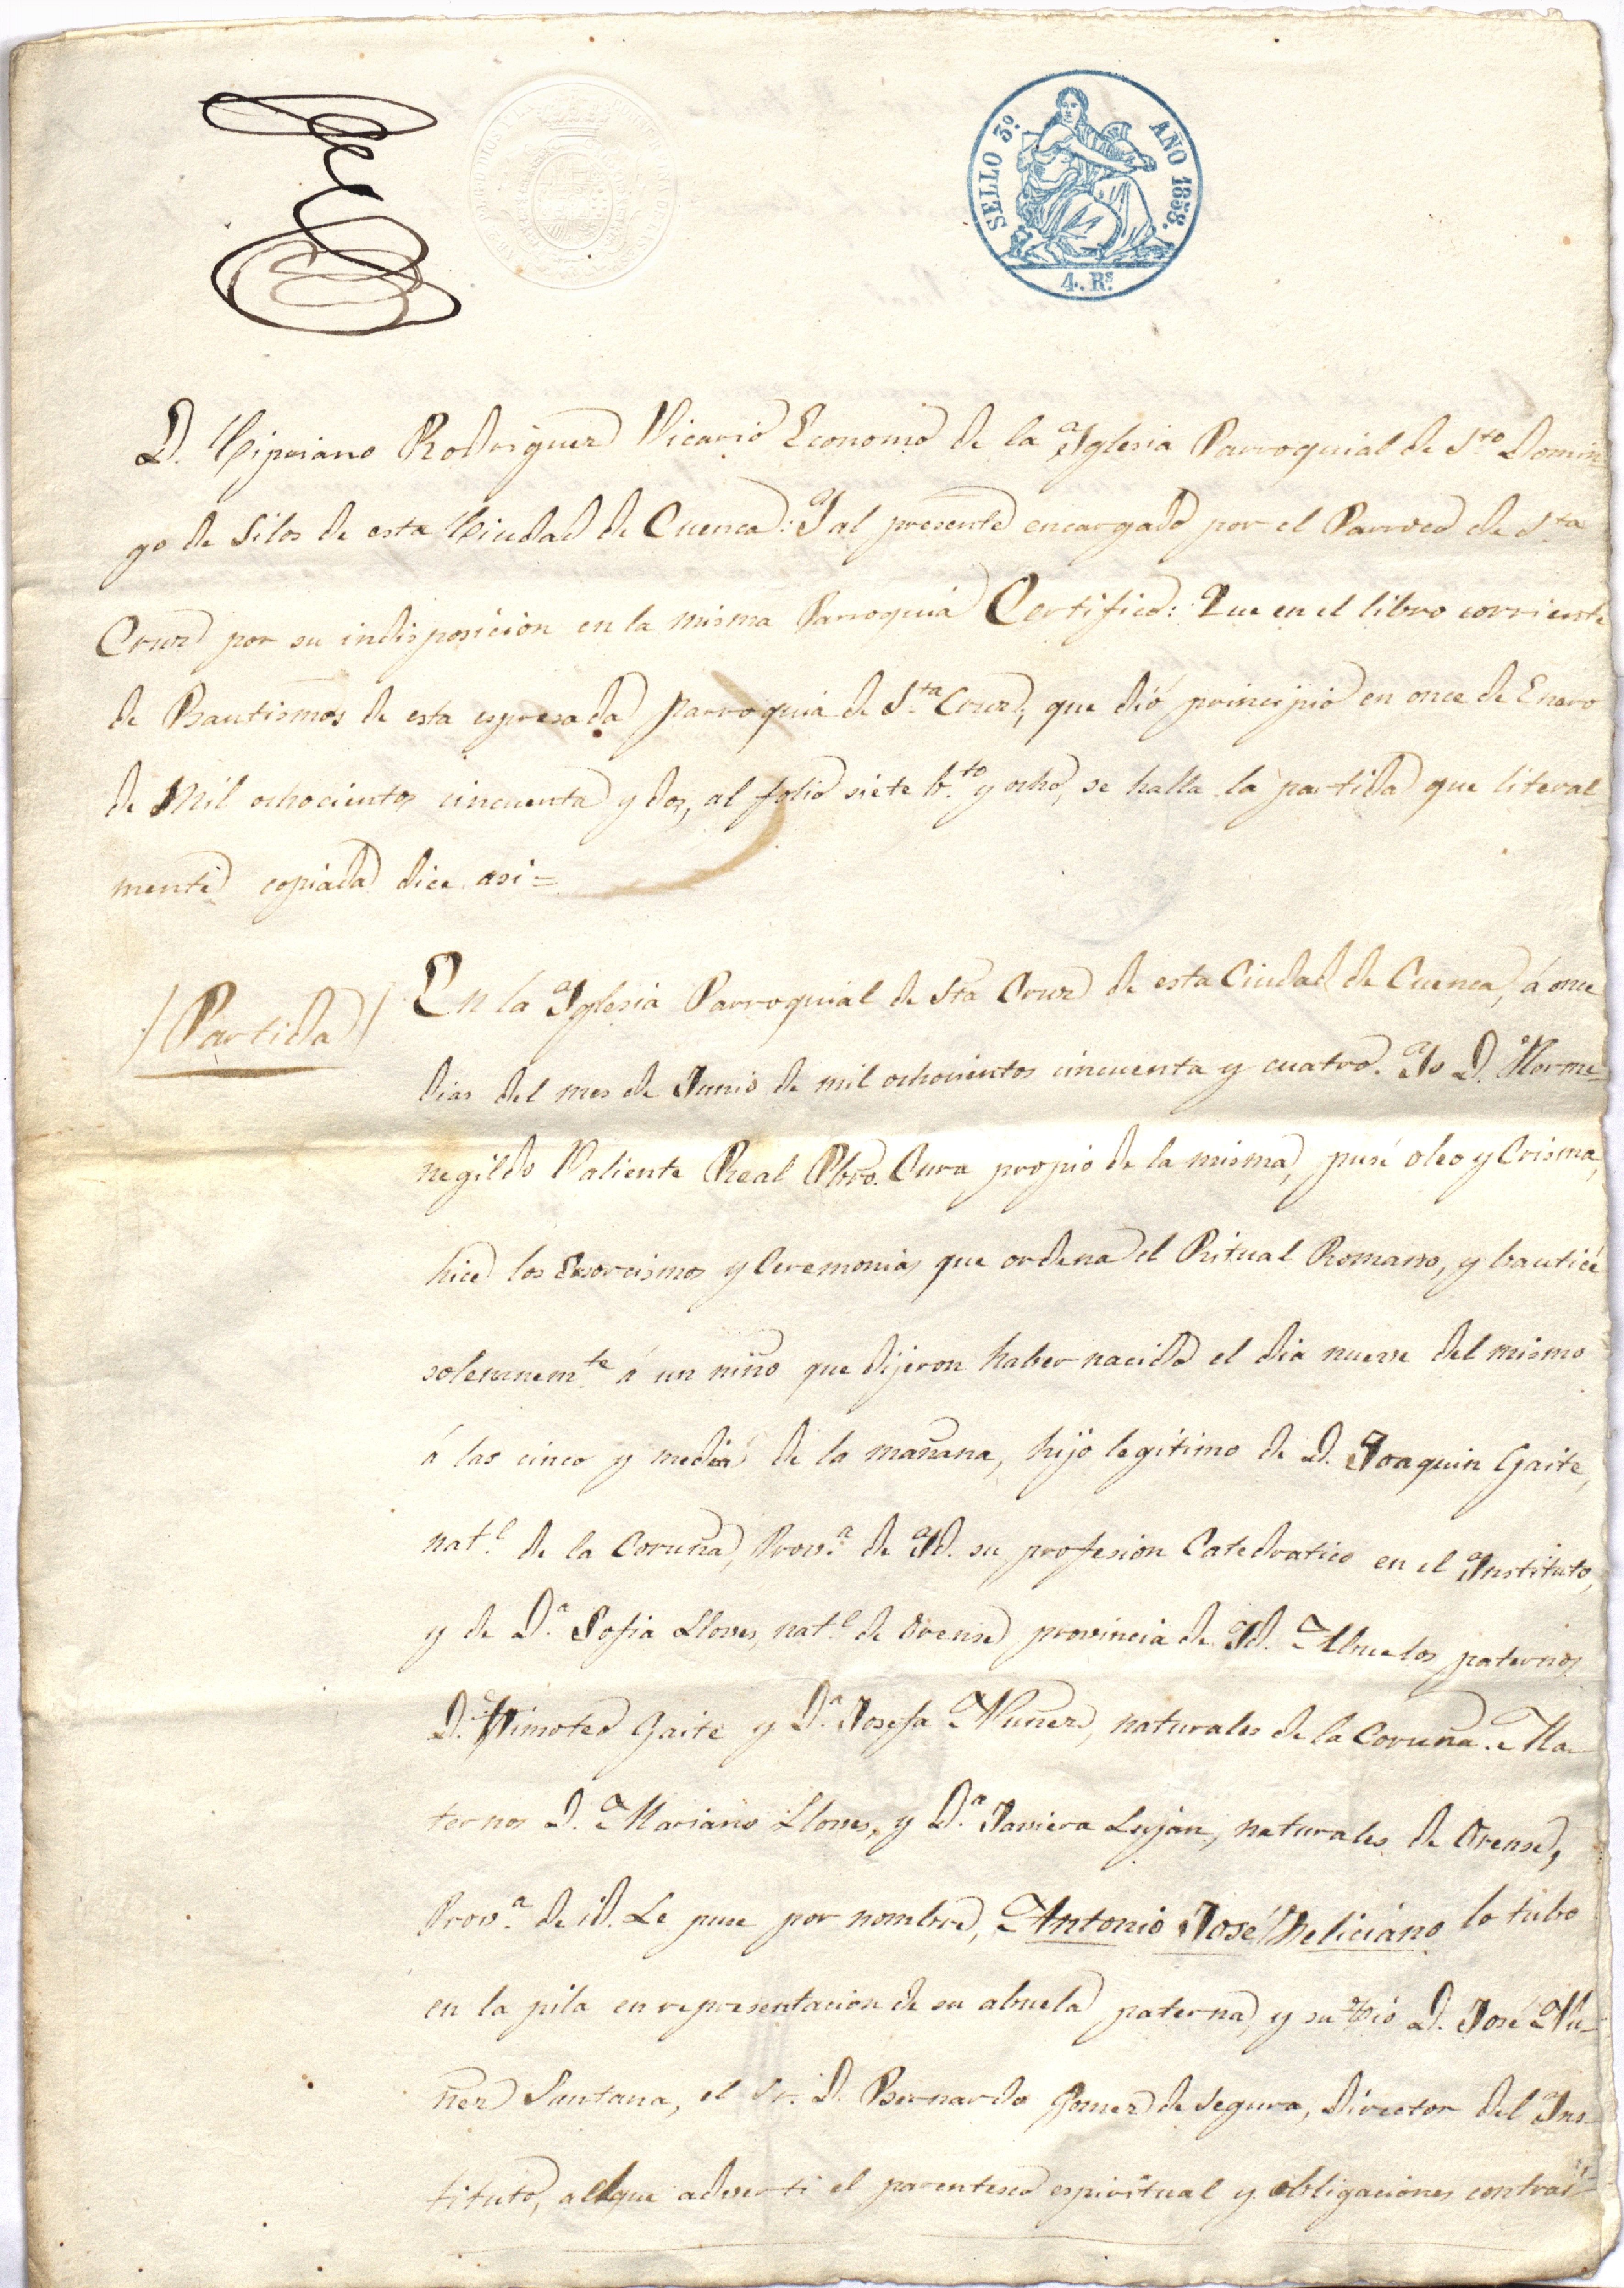 SELLO 3º. AÑO 1858.
4. Rs.
D. Cipriano Rodriguez Vicario Economo de la Iglesia Parroquial de Sto. Domin
go de Silos de esta Ciudad de Cuenca: Y al presente encargado por el Parroco de Sta.
Cruz por su indisposicion en la misma Parroquia Certifico: Que en el libro corriente
de Bautismos de esta espresada parroquia de Sta. Cruz, que dió principio en once de Enero
de Mil ochocientos cincuenta y dos, al folio siete bto. y ocho, se halla la partida que literal
mente copiada dice asi=
/Partida/
En la Iglesia Parroquial de Sta Cruz de esta Ciudad de Cuenca, á once
dias del mes de Junio de mil ochocientos cincuenta y cuatro. Yo D. Herme-
negildo Valiente Real Pbro. Cura propio de la misma, puse oleo y Crisma,
hice los Exorcismos y Ceremonias que ordena el Ritual Romano, y bauticé
solemnemte. á un niño que dijeron haber nacido el dia nueve del mismo
á las cinco y media de la mañana, hijo legitimo de D. Joaquin Gaite,
natl. de la Coruña, Prova. de Id. su profesion Catedratico en el Instituto,
y de Da. Sofia Lloves, natl. de Orense provincia de Id. Abuelos paternos
D. Timoteo Gaite y Da. Josefa Nuñez, naturales de la Coruña. Ma
ternos D. Mariano Lloves, y Da. Javiera Luján, naturales de Orense,
Prova. de id. Le puse por nombre, Antonio José Feliciano lo tubo
en la pila en representacion de su abuela paterna, y su tio D. José Nu-
ñez Santana, el Sr. D. Bernardo Gomez de Segura, Director del Ins-
tituto, al que adverti el parentesco espiritual y obligaciones contrai-